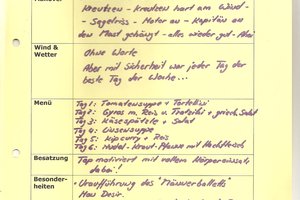 Manöver
Kreutzen - Kreutzen hart am Wind -
- Segelriss - Motor an - Kapitän an
den Mast gehängt - alles wieder gut - Ahoi
Wind &
Wetter
Ohne Worte
Aber mit Sicherheit war jeder Tag der
beste Tag der Woche...
Menü
Tag 1: Tomatensuppe + Tortellini
Tag 2: Gyros m. Reis u. Tzatziki + griech. Salat
Tag 3: Käsespätzle + Salat
Tag 4: Linsensuppe
Tag 5: Kipcurry + Reis
Tag 6: Nudel-Kraut-Pfanne mit Nachtisch
Besatzung
Top motiviert mit vollem Körpereinsatz
dabei!
Besonder-
heiten
- Uraufführung des "Männerballetts"
Mon Desir.